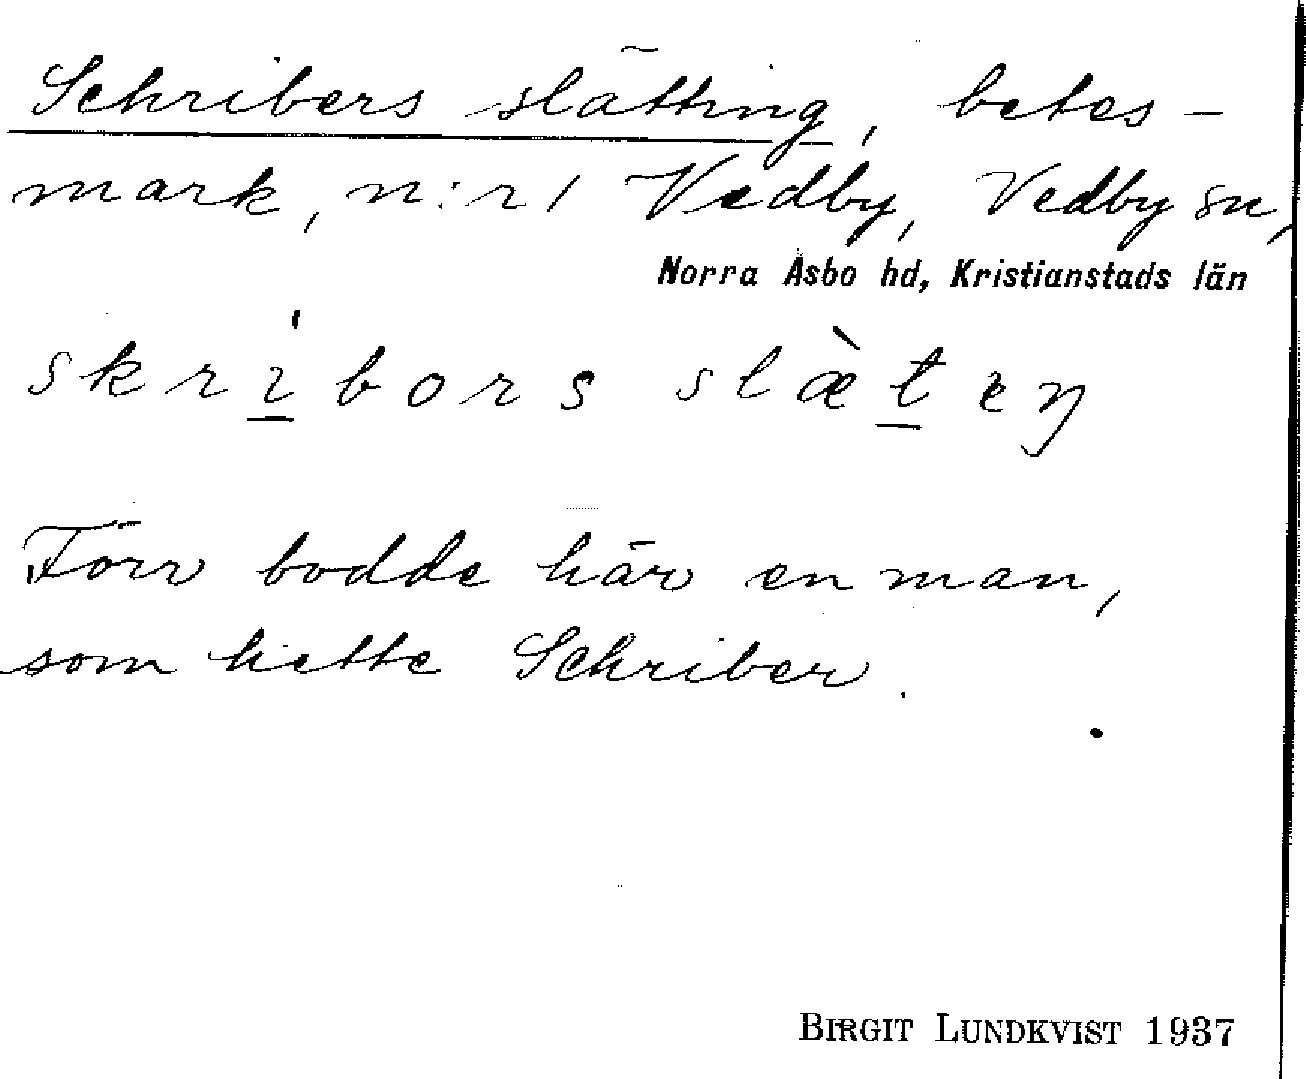 Schribers slätting, betes-
mark, n:r 1 Vedby, Vedby sn,
Norra Åsbo hd, Kristianstads län
skrı̲́bors slæ̀t̲eŋ
Förr bodde här en man,
som hette Schriber.
BIRGIT LUNDKVIST 1937